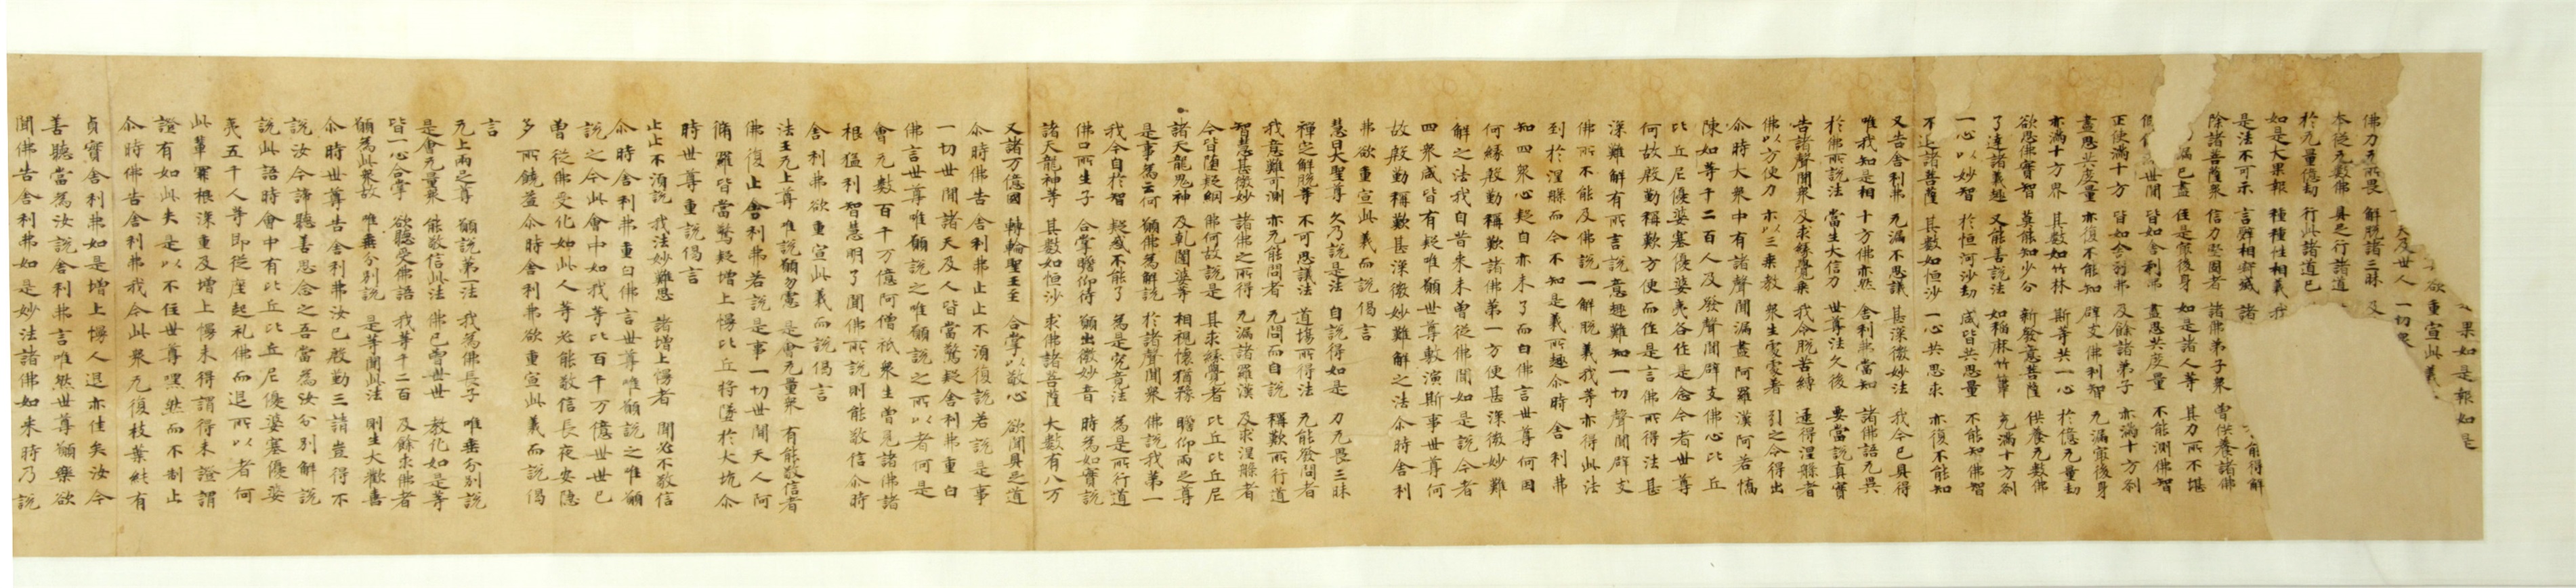 果如是報如是
欲重宣此義
天及世人 一切衆
佛力无所畏 解脫諸三昧 及
本從无數佛 具足行諸道
於无量億劫 行此諸道已
如是大果報 種種性相義 我
是法不可示 言辭相寂滅 諸 能得解
除諸菩薩衆 信力堅固者 諸佛弟子衆 曾供養諸佛
漏已盡 住是最後身 如是諸人等 其力所不堪
世間 皆如舍利弗 盡思共度量 不能測佛智
正使滿十方 皆如舍利弗 及餘諸弟子 亦滿十方刹
盡思共度量 亦復不能知 辟支佛利智 无漏最後身
亦滿十方界 其數如竹林 斯等共一心 於億无量劫
欲思佛實智 莫能知少分 新發意菩薩 供養无數佛
了達諸義趣 又能善說法 如稻麻竹葦 充滿十方刹
一心以妙智 於恒河沙劫 咸皆共思量 不能知佛智
不退諸菩薩 其數如恒沙 一心共思求 亦復不能知
又告舍利弗 无漏不思議 甚深微妙法 我今已具得
唯我知是相 十方佛亦然 舍利弗當知 諸佛語无異
於佛所說法 當生大信力 世尊法久後 要當說真實
告諸聲聞衆 及求緣覺乘 我令脫苦縛 逮得涅槃者
佛以方便力 示以三乘教 衆生處處著 引之令得出
尒時大衆中有諸聲聞漏盡阿羅漢阿若憍
陳如等千二百人及發聲聞辟支佛心比丘
比丘尼優婆塞優婆夷各作是念今者世尊
何故殷勤稱歎方便而作是言佛所得法甚
深難解有所言說意趣難知一切聲聞辟支
佛所不能及佛說一解脫義我等亦得此法
到於涅槃而今不知是義所趣尒時舍利弗
知四衆心疑自亦未了而白佛言世尊何因
何緣殷勤稱歎諸佛第一方便甚深微妙難
解之法我自昔來未曾從佛聞如是說今者
四衆咸皆有疑唯願世尊敷演斯事世尊何
故殷勤稱歎甚深微妙難解之法尒時舍利
弗欲重宣此義而說偈言
慧日大聖尊 久乃說是法 自說得如是 力无畏三昧
禪定解脫等 不可思議法 道場所得法 无能發問者
我意難可測 亦无能問者 无問而自說 稱歎所行道
智慧甚微妙 諸佛之所得 无漏諸羅漢 及求涅槃者
今皆墮疑網 佛何故說是 其求緣覺者 比丘比丘尼
諸天龍鬼神 及乾闥婆等 相視懷猶豫 瞻仰兩足尊
是事爲云何 願佛爲解說 於諸聲聞衆 佛說我第一
我今自於智 疑惑不能了 爲是究竟法 爲是所行道
佛口所生子 合掌瞻仰待 願出微妙音 時爲如實說
諸天龍神等 其數如恒沙 求佛諸菩薩 大數有八万
又諸万億國 轉輪聖王至 合掌以敬心 欲聞具足道
尒時佛告舍利弗止止不須復說若說是事
一切世間諸天及人皆當驚疑舍利弗重白
佛言世尊唯願說之唯願說之所以者何是
會无數百千万億阿僧祇衆生曾見諸佛諸
根猛利智慧明了聞佛所說則能敬信尒時
舍利弗欲重宣此義而說偈言
法王无上尊 唯說願勿慮 是會无量衆 有能敬信者
佛復止舍利弗若說是事一切世間天人阿
脩羅皆當驚疑增上慢比丘將墜於大坑尒
時世尊重說偈言
止止不須說 我法妙難思 諸增上慢者 聞必不敬信
尒時舍利弗重白佛言世尊唯願說之唯願
說之今此會中如我等比百千万億世世已
曾從佛受化如此人等必能敬信長夜安隱
多所饒益尒時舍利弗欲重宣此義而說偈
言
无上兩足尊 願說第一法 我爲佛長子 唯垂分別說
是會无量衆 能敬信此法 佛已曾世世 教化如是等
皆一心合掌 欲聽受佛語 我等千二百 及餘求佛者
願爲此衆故 唯垂分別說 是等聞此法 則生大歡喜
尒時世尊告舍利弗汝已殷勤三請豈得不
說汝今諦聽善思念之吾當爲汝分別解說
說此語時會中有比丘比丘尼優婆塞優婆
夷五千人等即從座起礼佛而退所以者何
此輩罪根深重及增上慢未得謂得未證謂
證有如此失是以不住世尊嘿然而不制止
尒時佛告舍利弗我今此衆无復枝葉純有
貞實舍利弗如是增上慢人退亦佳矣汝今
善聽當爲汝說舍利弗言唯然世尊願樂欲
聞佛告舍利弗如是妙法諸佛如來時乃說